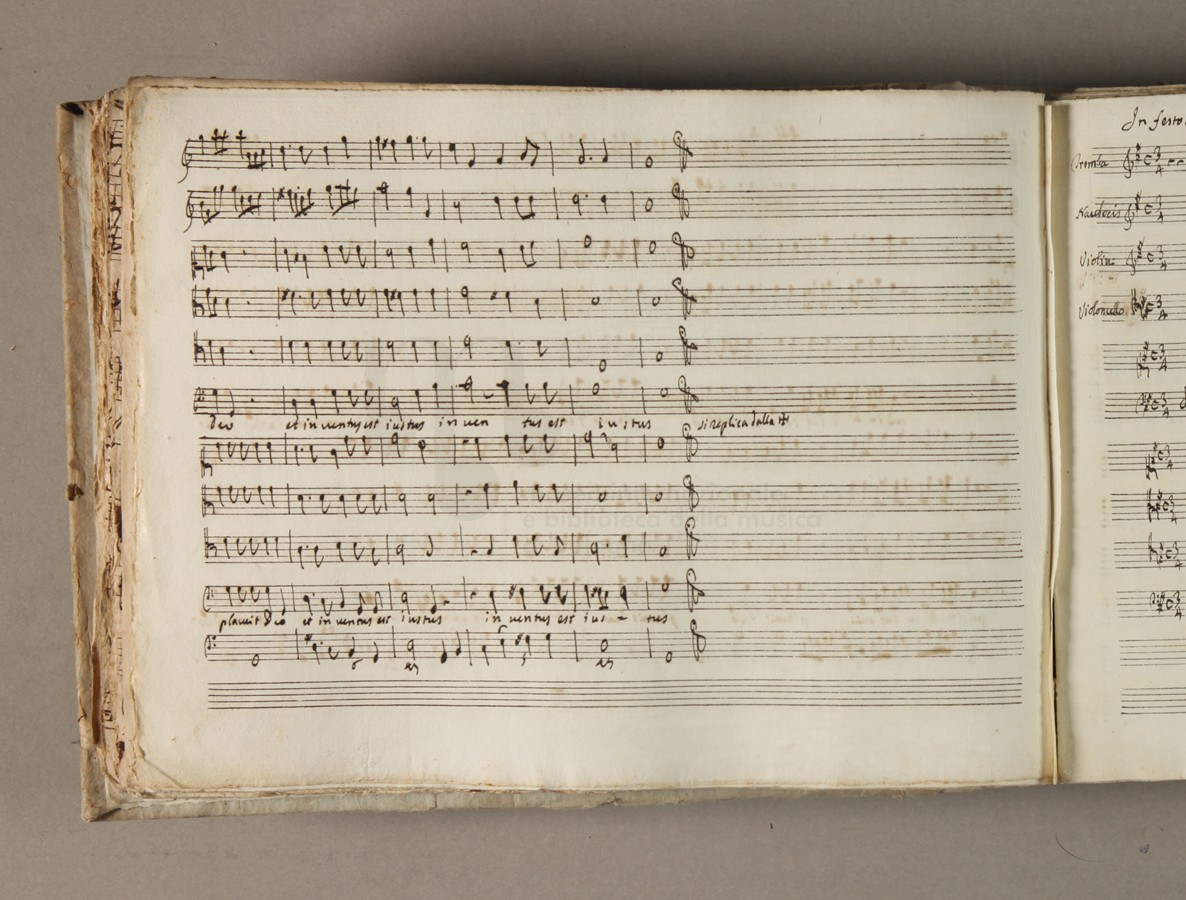 Deo et inventus est iustus in ven tus est iustus si replica dalla
placuit Deo et inventus est iustus inventus est ius - tus
e biblioteca della musica
In festo
Tromba
Violini
Violoncello